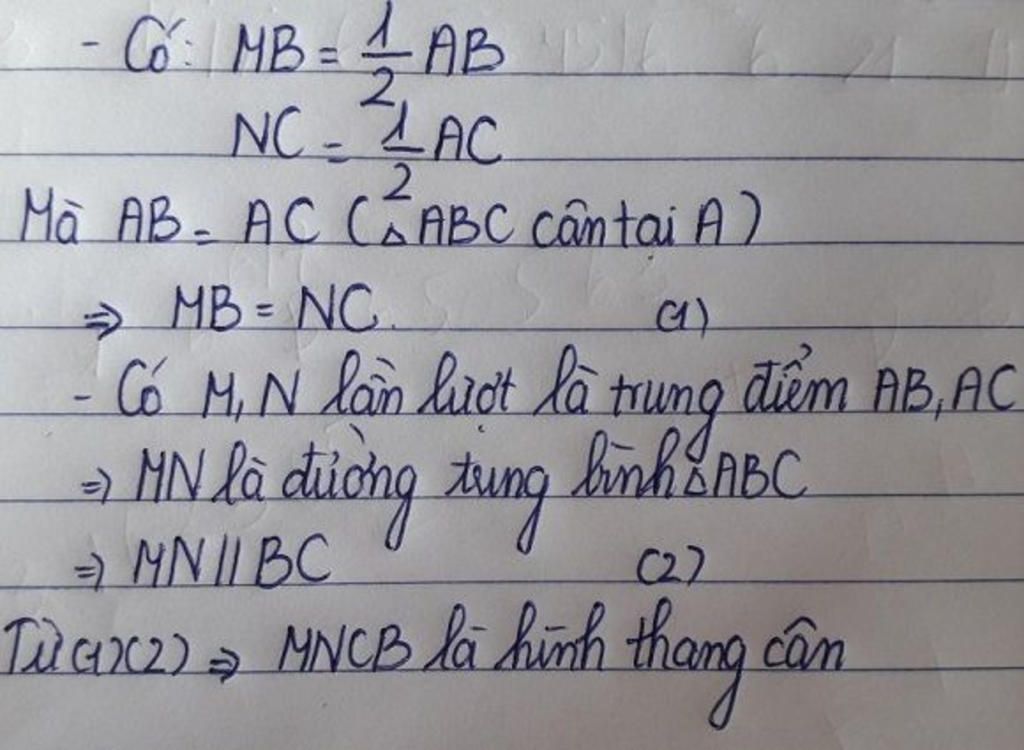 - Có: MB = 1/2 AB
NC = 1/2 AC
Mà AB = AC (△ABC cân tại A)
⇒ MB = NC. (1)
- Có M, N lần lượt là trung điểm AB, AC
⇒ MN là đường tung bình △ABC
⇒ MN // BC (2)
Từ (1)(2) ⇒ MNCB là hình thang cân